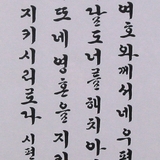 여호와께서 네 우편
달도 너를 해치 아
또 네 영혼을 지키
지키시리로다 시편